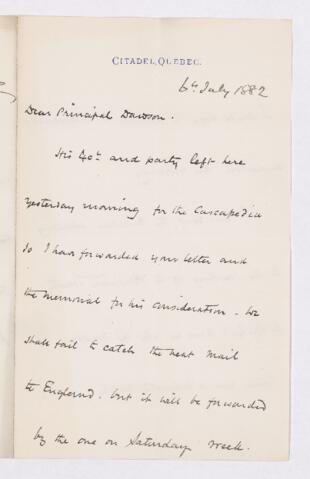 CITADEL, QUEBEC.
6th July 1882
Dear Principal Dawson.
His Excy. and party left here
yesterday morning for the Cascapedia
so I have forwarded your letter and
the memorial for his consideration. We
shall fail to catch the next mail
to England. but it will be forwarded
by the one on Saturday week.